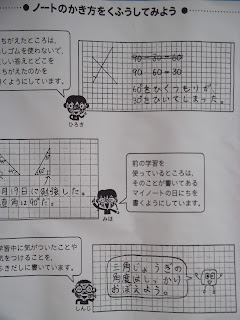 ●ノートのかき方をくふうしてみよう●
ちがえたところは、
しゴムを使わないで、
しい答えとどこを
ちがえたのかを
くようにしています。
ひろき
90-30=60
90-60=30
60をひくつもりが
30をひいてしまった。
前の学習を
使っているところは、
そのことが書いてある
マイノートの日にちを
書くようにしています。
みほ
月19日に勉強した。
直角は90°だ。
学習中に気がついたことや
気をつけることを、
ふきだしに書いています。
しんじ
三角じょうぎの
角度はしっかり
おぼえよう。